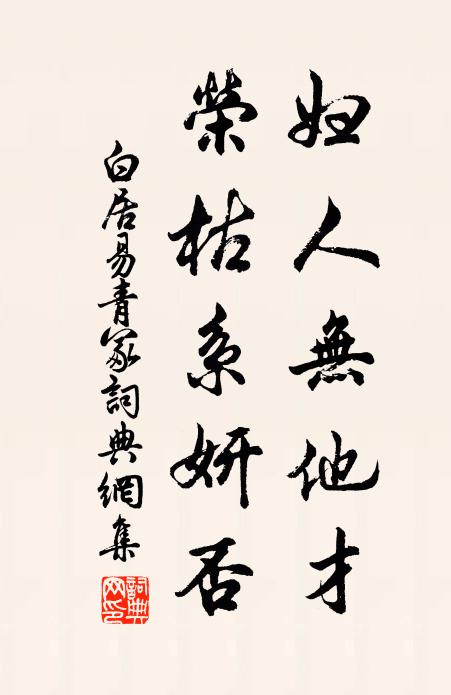 妇人無他才
榮枯系妍否
白居易青冢詞典網集
詞典网印